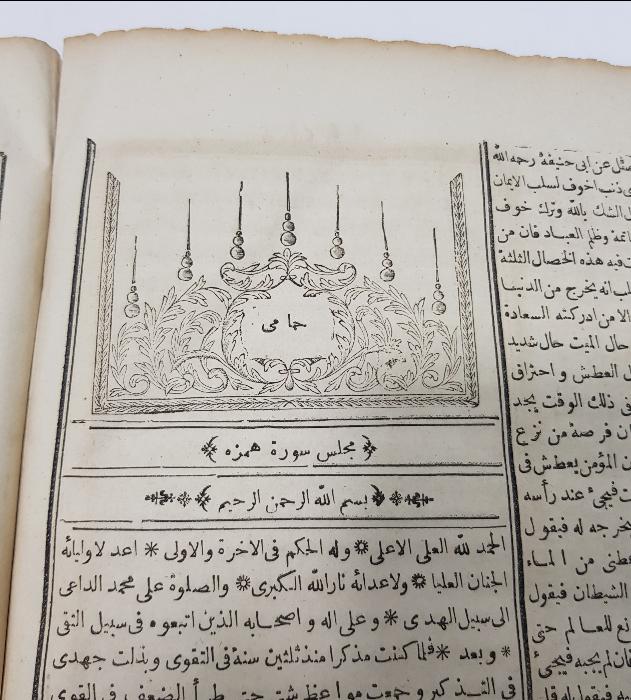 جامى
مجلس سورة همزه
بسم الله الرحمن الرحيم
الحمد لله العلى الاعلى * وله الحكم فى الاخرة والاولى * اعد لاوليائه
الجنان العليا * ولاعدائه نارالله الكبرى * والصلوة على محمد الداعى
الى سبيل الهدى * و على اله و اصحابه الذين اتبعوه فى سبيل التقى
* و بعد * فلما كنت مذكرا منذ ثلثين سنة فى التقوى و بذلت جهدى
فى التذكير و جمعت مواعظ شتى حتى طرأ الضعف فى القوى
عن ابى حنيفة رحمه الله
ذنب اخوف لسلب الايمان
الشك بالله وترك خوف
وظلم العباد فان من
فيه هذه الخصال الثلثة
انه يخرج من الدنيا
الا من ادركته السعادة
حال الميت حال شديد
العطش و احتراق
فى ذلك الوقت يجد
فرصة من نزع
المؤمن يعطش فى
فيجئ عند رأسه
له فيقول
من الماء
الشيطان فيقول
للعالم حتى
فان لم يجبه فيجئ
فيقول